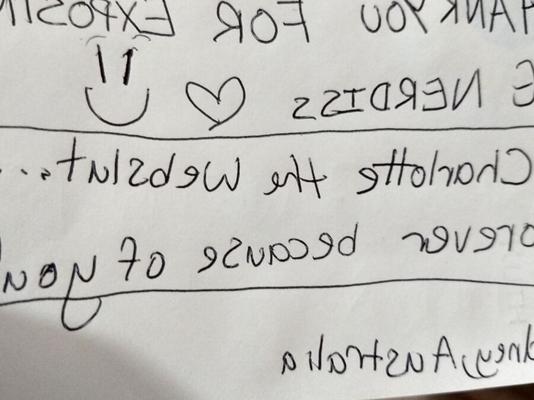 HANK YOU FOR EXPOSIN
E NERDISS ♡
Charlotte the website...
orever because of you
dney, Australia